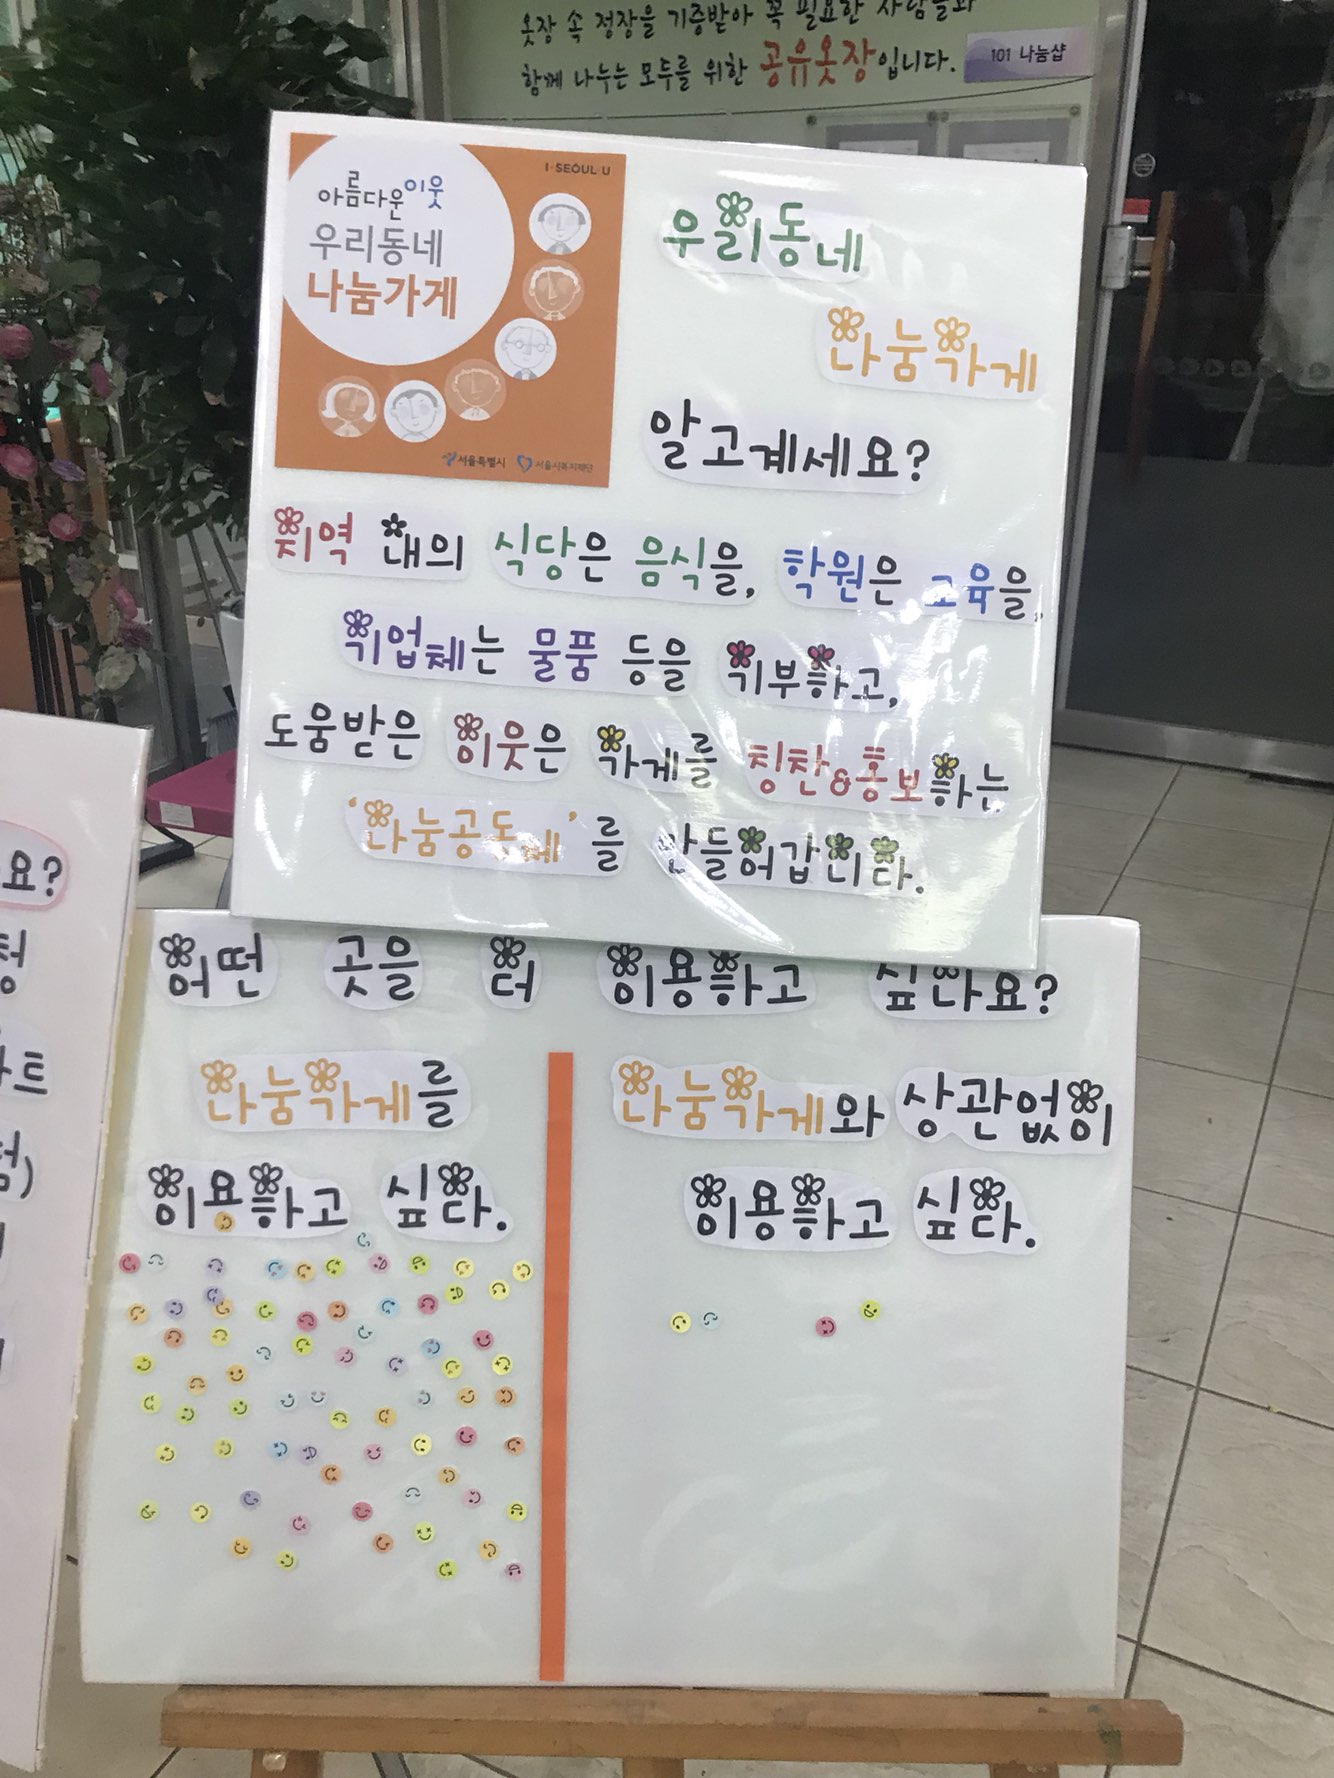 옷장 속 정장을 기증받아 꼭 필요한 사람들과
함께 나누는 모두를 위한 공유옷장입니다.
101 나눔샵
I·SEOUL·U
아름다운이웃
우리동네
나눔가게
서울특별시 서울시복지재단
우리동네
나눔가게
알고계세요?
지역 내의 식당은 음식을, 학원은 교육을,
기업체는 물품 등을 기부하고,
도움받은 이웃은 가게를 칭찬&홍보하는
'나눔공동체'를 만들어갑니다.
어떤 곳을 더 이용하고 싶나요?
나눔가게를
이용하고 싶다.
나눔가게와 상관없이
이용하고 싶다.
요?